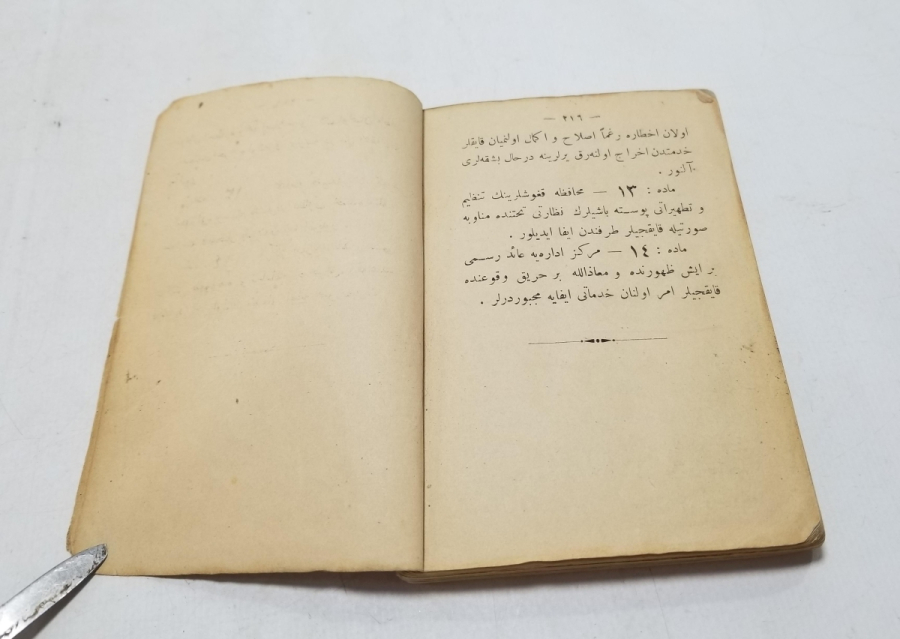 — ٢١٦ —
اولان اخطاره رغماً اصلاح و اكمال اولنميان قايقلر
خدمتدن اخراج اولنه‌رق يرلرينه درحال بشقه‌لرى
آلنور .
ماده : ١٣ — محافظه قغوشلرينك تنظيم
و تطهيراتى پوسته باشيلرك نظارتى تحتنده مناوبه
صورتيله قايقجيلر طرفندن ايفا ايديلور .
ماده : ١٤ — مركز اداره‌يه عائد رسمى
بر ايش ظهورنده و معاذالله بر حريق وقوعنده
قايقجيلر امر اولنان خدماتى ايفايه مجبوردرلر .